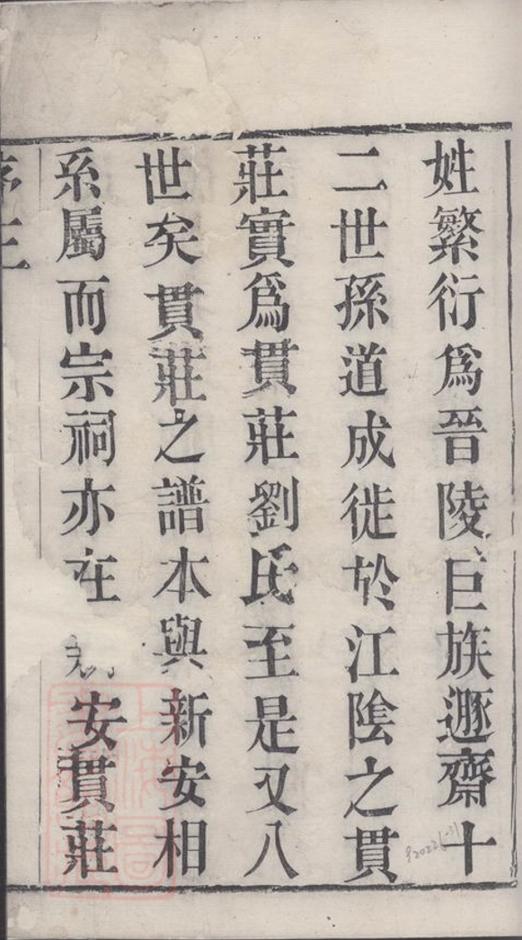 姓繁衍爲晉陵巨族遯齋十
二世孫道成徙於江陰之貫
莊實爲貫莊劉氏至是又八
世矣貫莊之譜本與新安相
系屬而宗祠亦在新安貫莊